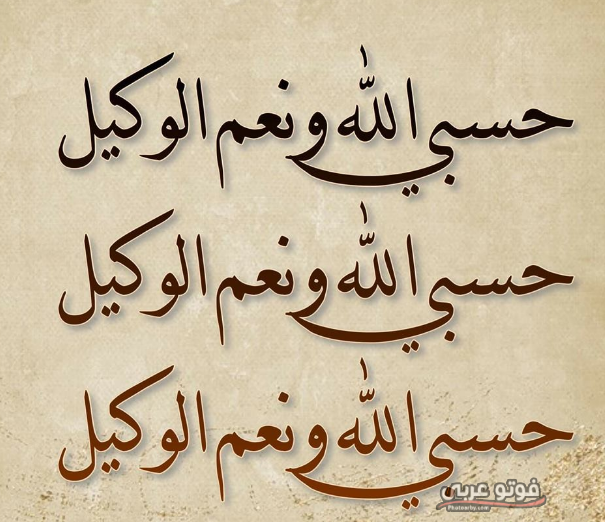 حسبي الله ونعم الوكيل
حسبي الله ونعم الوكيل
حسبي الله ونعم الوكيل
فوتو عربي
Photoarby.com